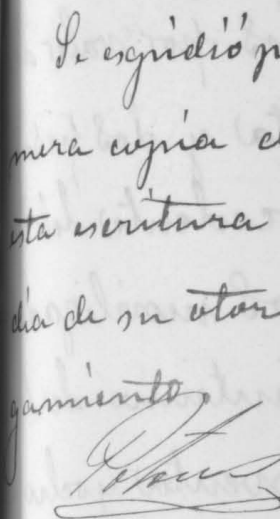 Se espidió p
mera copia d
sta escritura
dia de su otor
gamiento.